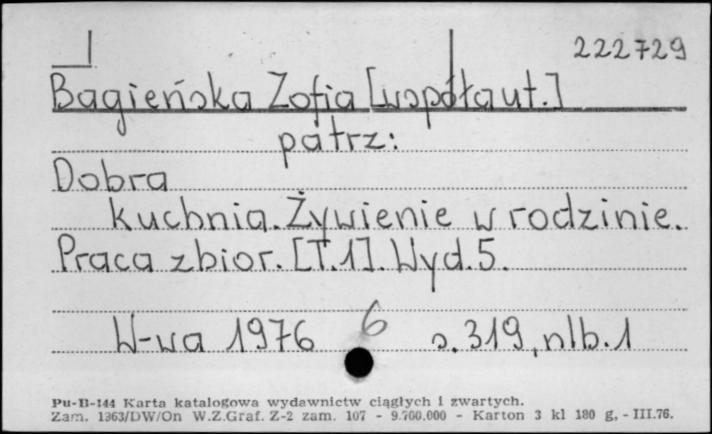 222729
Bagieńska Zofia [współaut.]
patrz:
Dobra
kuchnia. Żywienie w rodzinie.
Praca zbior. [T.1]. Wyd. 5.
6
W-wa 1976 s. 319, nlb. 1
Pu-B-144 Karta katalogowa wydawnictw ciągłych i zwartych.
Zam. 1363/DW/On W.Z.Graf. Z-2 zam. 107 - 9.700.000 - Karton 3 kl 180 g. - III.76.